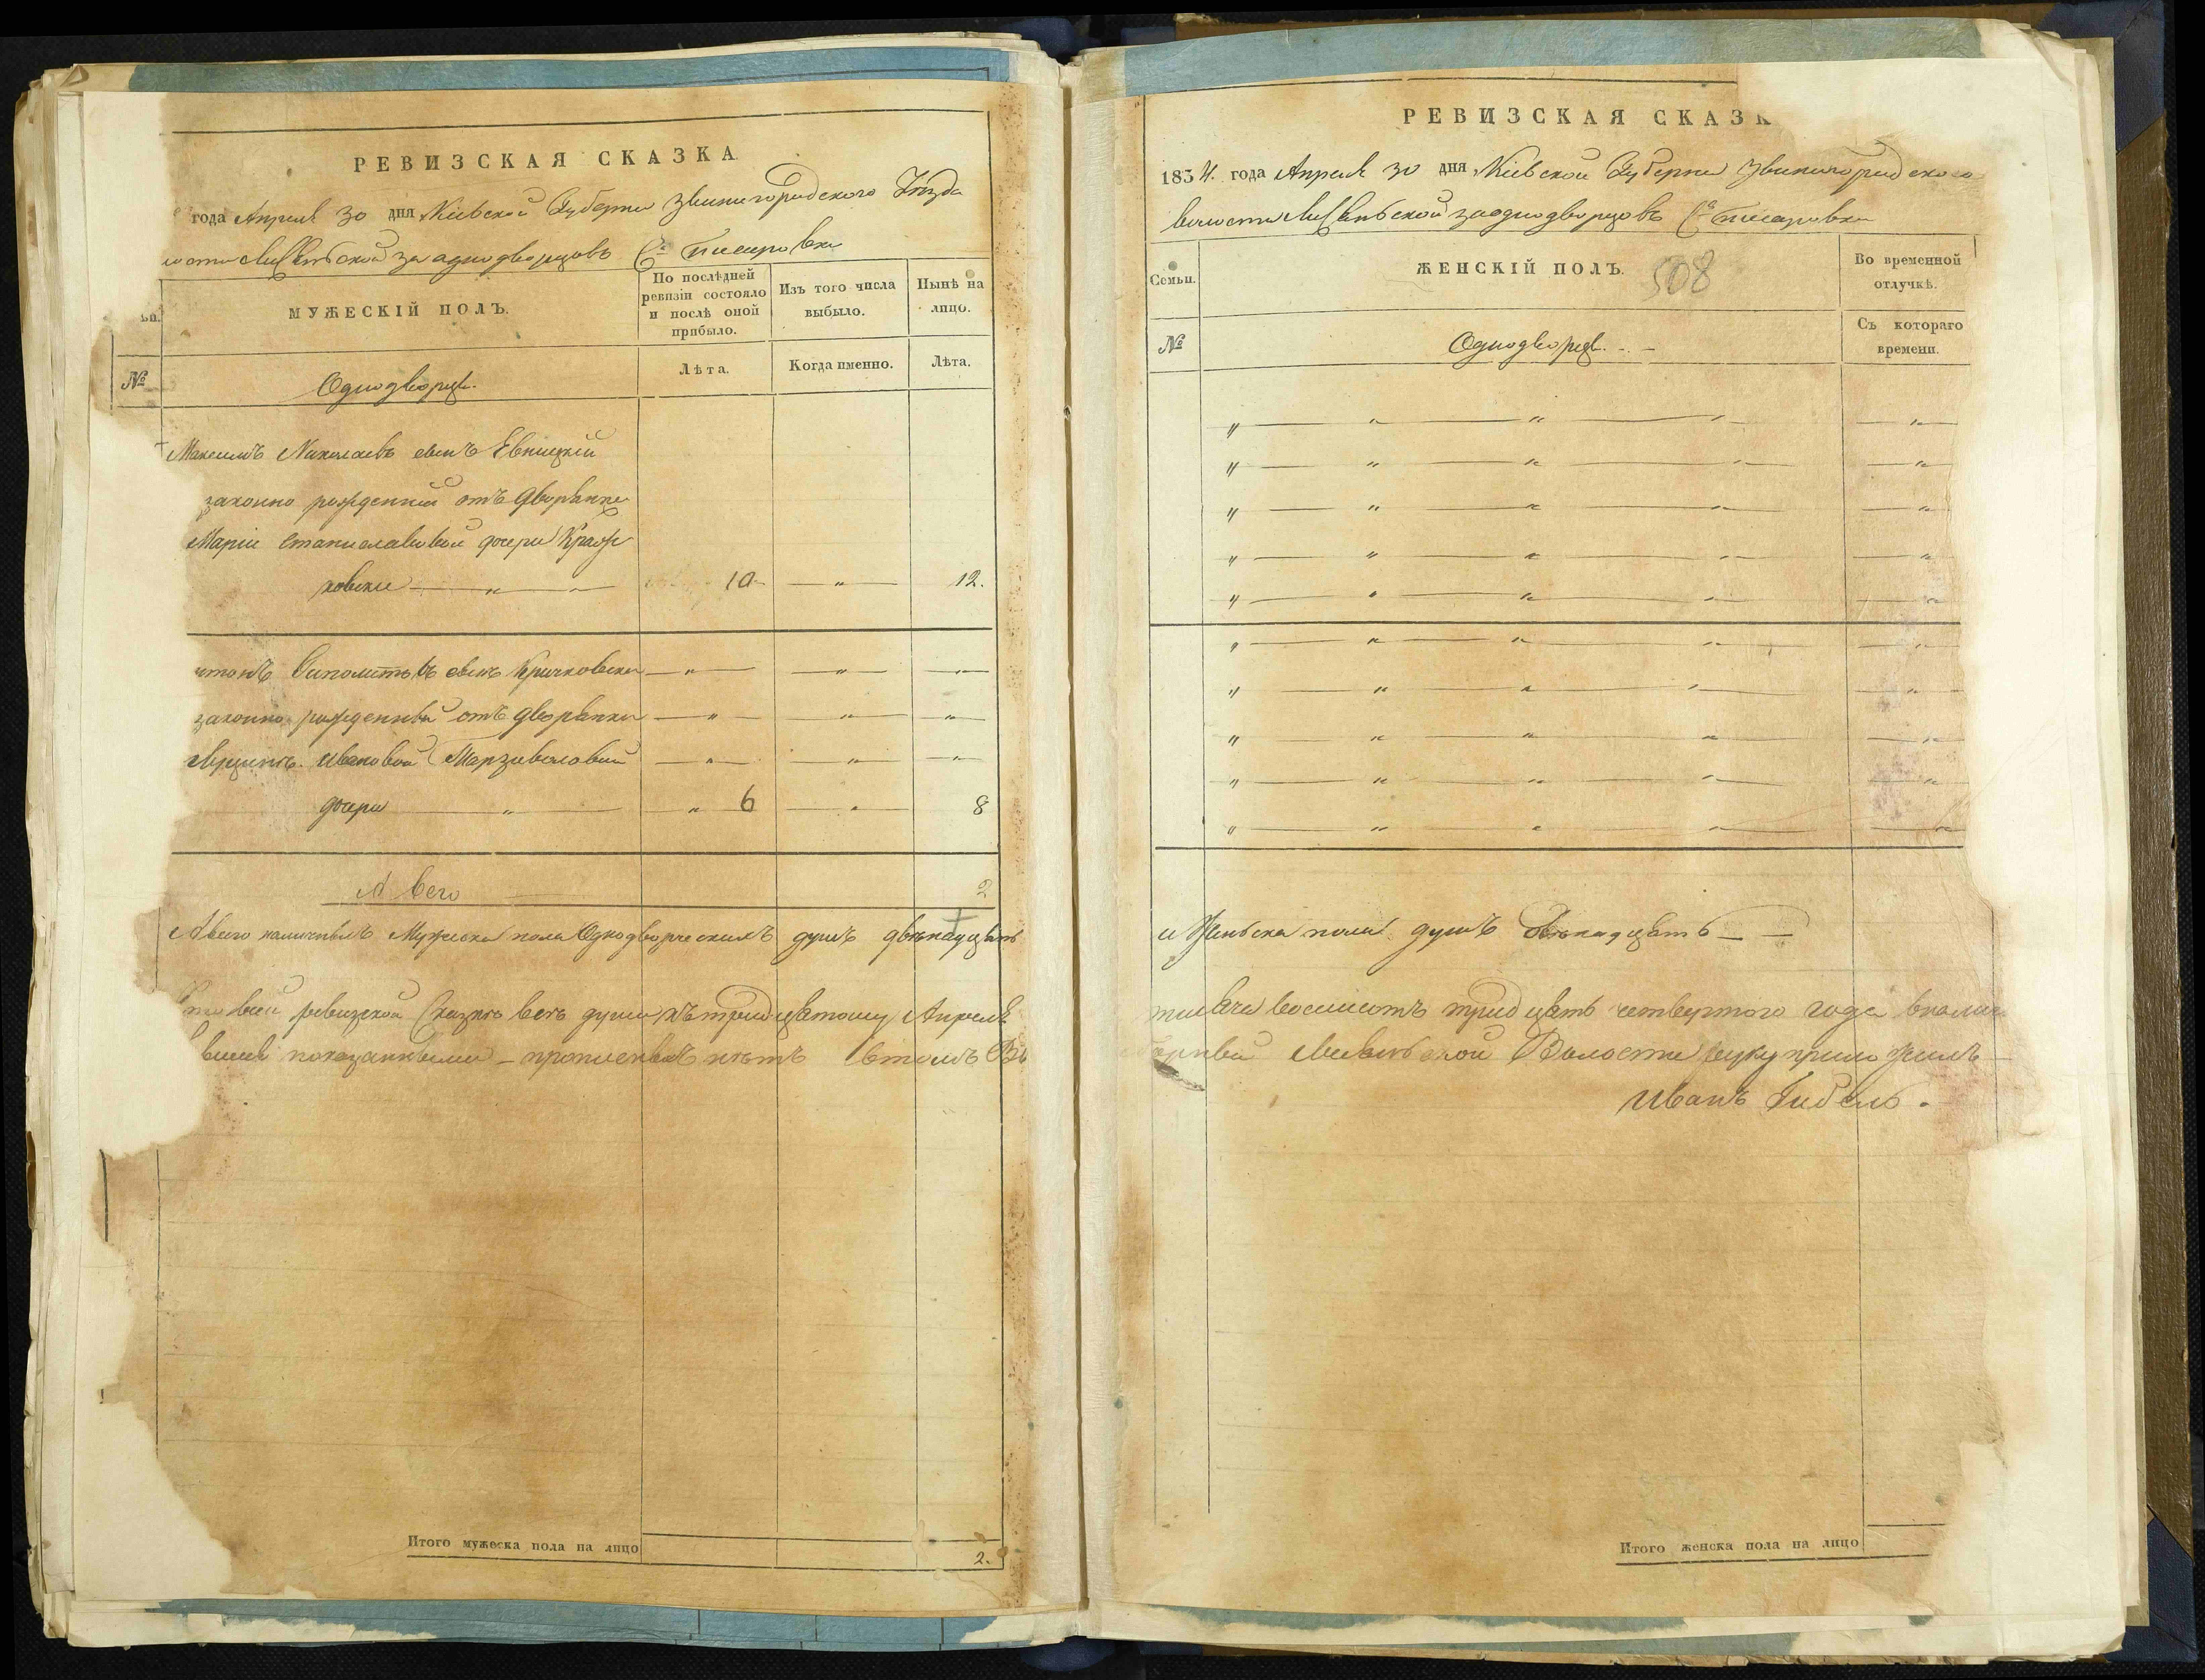 РЕВИЗСКАЯ СКАЗКА
года Апреля 30 дня Кіевской Губерніи Звинигородского Уѣзда
за однодворцовъ С. Писаровки
МУЖЕСКІЙ ПОЛЪ.
По послѣдней ревизіи состояло и послѣ оной прибыло.
Изъ того числа выбыло.
Нынѣ на лицо.
№
Однодворцы.
Лѣта.
Когда именно.
Лѣта.
Максимъ Николаевъ сынъ
законно рожденный отъ Дворянки
Маріи Станиславовой дочери
10 — „ — 12.
сынъ Кричковскій — „ — — „ — — „ —
законно рожденный отъ дворянки — „ — — „ — — „ —
Ивановой — „ — — „ — — „ —
дочери — „ — „ 6 — „ — 8
А всего 2
Авсего наличныхъ Мужеска пола Однодворческихъ душъ двѣнадцать
ревизской Сказкѣ всѣ души къ тридцатому Апреля
показанными – прописныхъ нѣтъ втомъ
Итого мужеска пола на лицо 2.
РЕВИЗСКАЯ СКАЗК
1834. года Апреля 30 дня Кіевской Губерніи Звинигородского
волости за однодворцовъ С. Писаровки
Семьи.
ЖЕНСКІЙ ПОЛЪ.
508
Во временной отлучкѣ.
№
Однодворцы. –
Съ котораго времени.
„ — „ — „ — „ — — „ —
„ — „ — „ — „ — — „ —
„ — „ — „ — „ — — „ —
„ — „ — „ — „ — — „ —
„ — „ — „ — „ — — „ —
„ — „ — „ — „ — — „ —
„ — „ — „ — „ — — „ —
„ — „ — „ — „ — — „ —
„ — „ — „ — „ — — „ —
„ — „ — „ — „ — — „ —
и Женска пола душъ двѣнадцать — —
тысяча восемсотъ тридцять четвертого года
Волости руку приложилъ
Иванъ
Итого женска пола на лицо